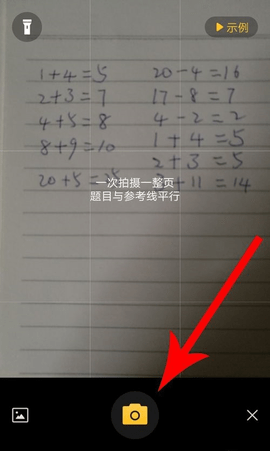 示例
1+4=5 20-4=16
2+3=7 17-8=7
4+5=8 4-2=2
8+9=10 1+4=5
2+3=5
20+5=25 +11=14
一次拍摄一整页
题目与参考线平行